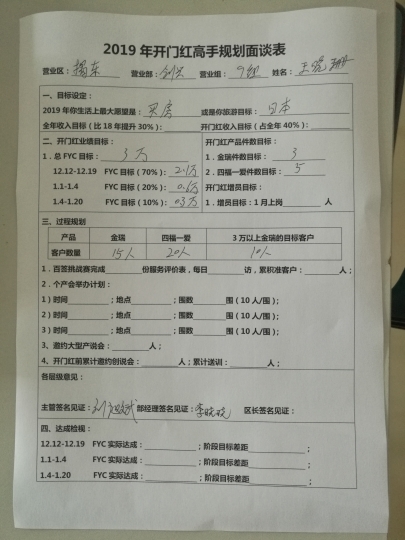 2019年开门红高手规划面谈表
营业区：揭东 营业部：创兴 营业组：9组 姓名：王晓珊
一、目标设定：
2019年你生活上最大愿望是：买房 或是你旅游目标：日本
全年收入目标（比18年提升30%）： 开门红收入目标（占全年40%）：
二、开门红业绩目标： 开门红产品件数目标：
1．总FYC目标：3万 1．金瑞件数目标：3
12.12-12.19 FYC目标（70%）：2.1万 2．四福一爱件数目标：5
1.1-1.4 FYC目标（20%）：0.6万 开门红增员目标：
1.4-1.20 FYC目标（10%）：0.3万 1．增员目标：1月上岗 人
三、过程规划
产品 金瑞 四福一爱 3万以上金瑞的目标客户
客户数量 15人 20人 10人
1．百签挑战赛完成 份服务评价表，每日 访，累积准客户： 人；
2．个产会举办计划：
1）时间 ；地点 ；围数 围（10人/围）；
2）时间 ；地点 ；围数 围（10人/围）；
3）时间 ；地点 ；围数 围（10人/围）；
3、邀约大型产说会： 人；
4、开门红前累计邀约创说会： 人；累计送训： 人；
各层级意见：
主管签名见证： 部经理签名见证：李晓晓 区长签名见证：
四、达成检视：
12.12-12.19 FYC实际达成： ；阶段目标差距 ；
1.1-1.4 FYC实际达成： ；阶段目标差距 ；
1.4-1.20 FYC实际达成： ；阶段目标差距 ；